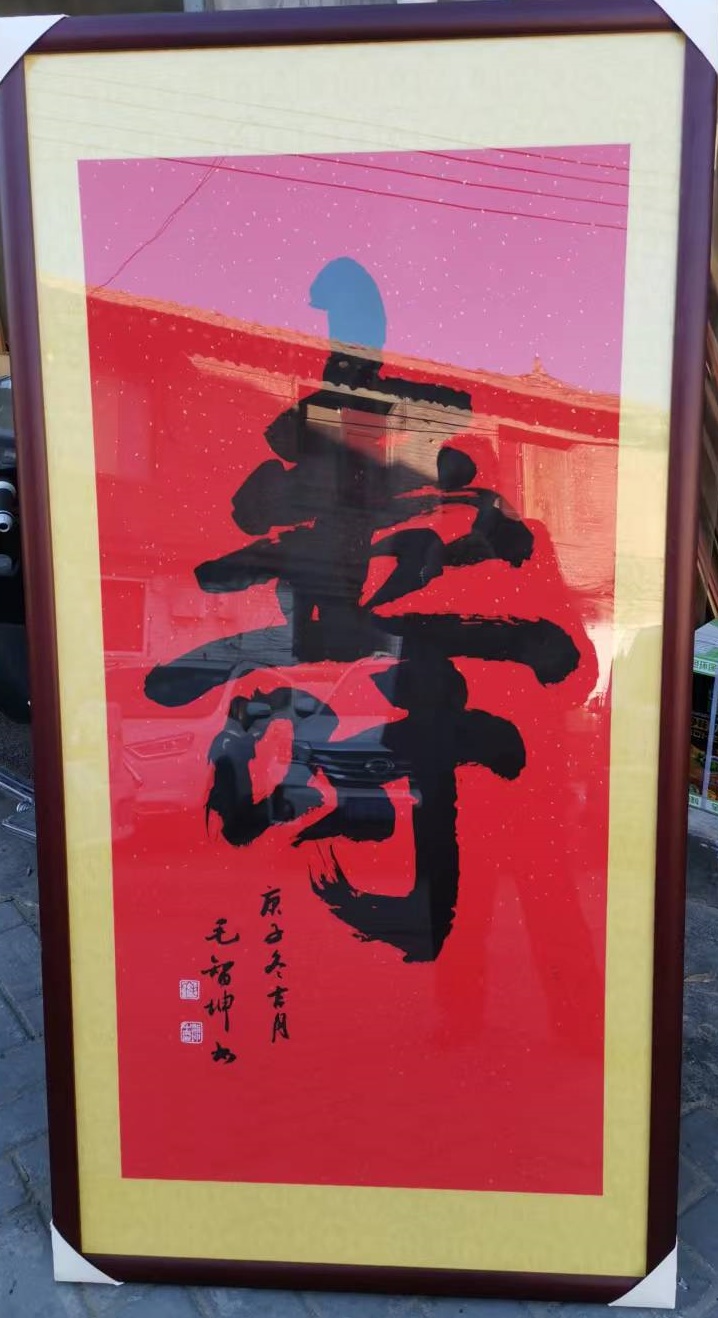 寿
庚子冬吉月
毛智坤书